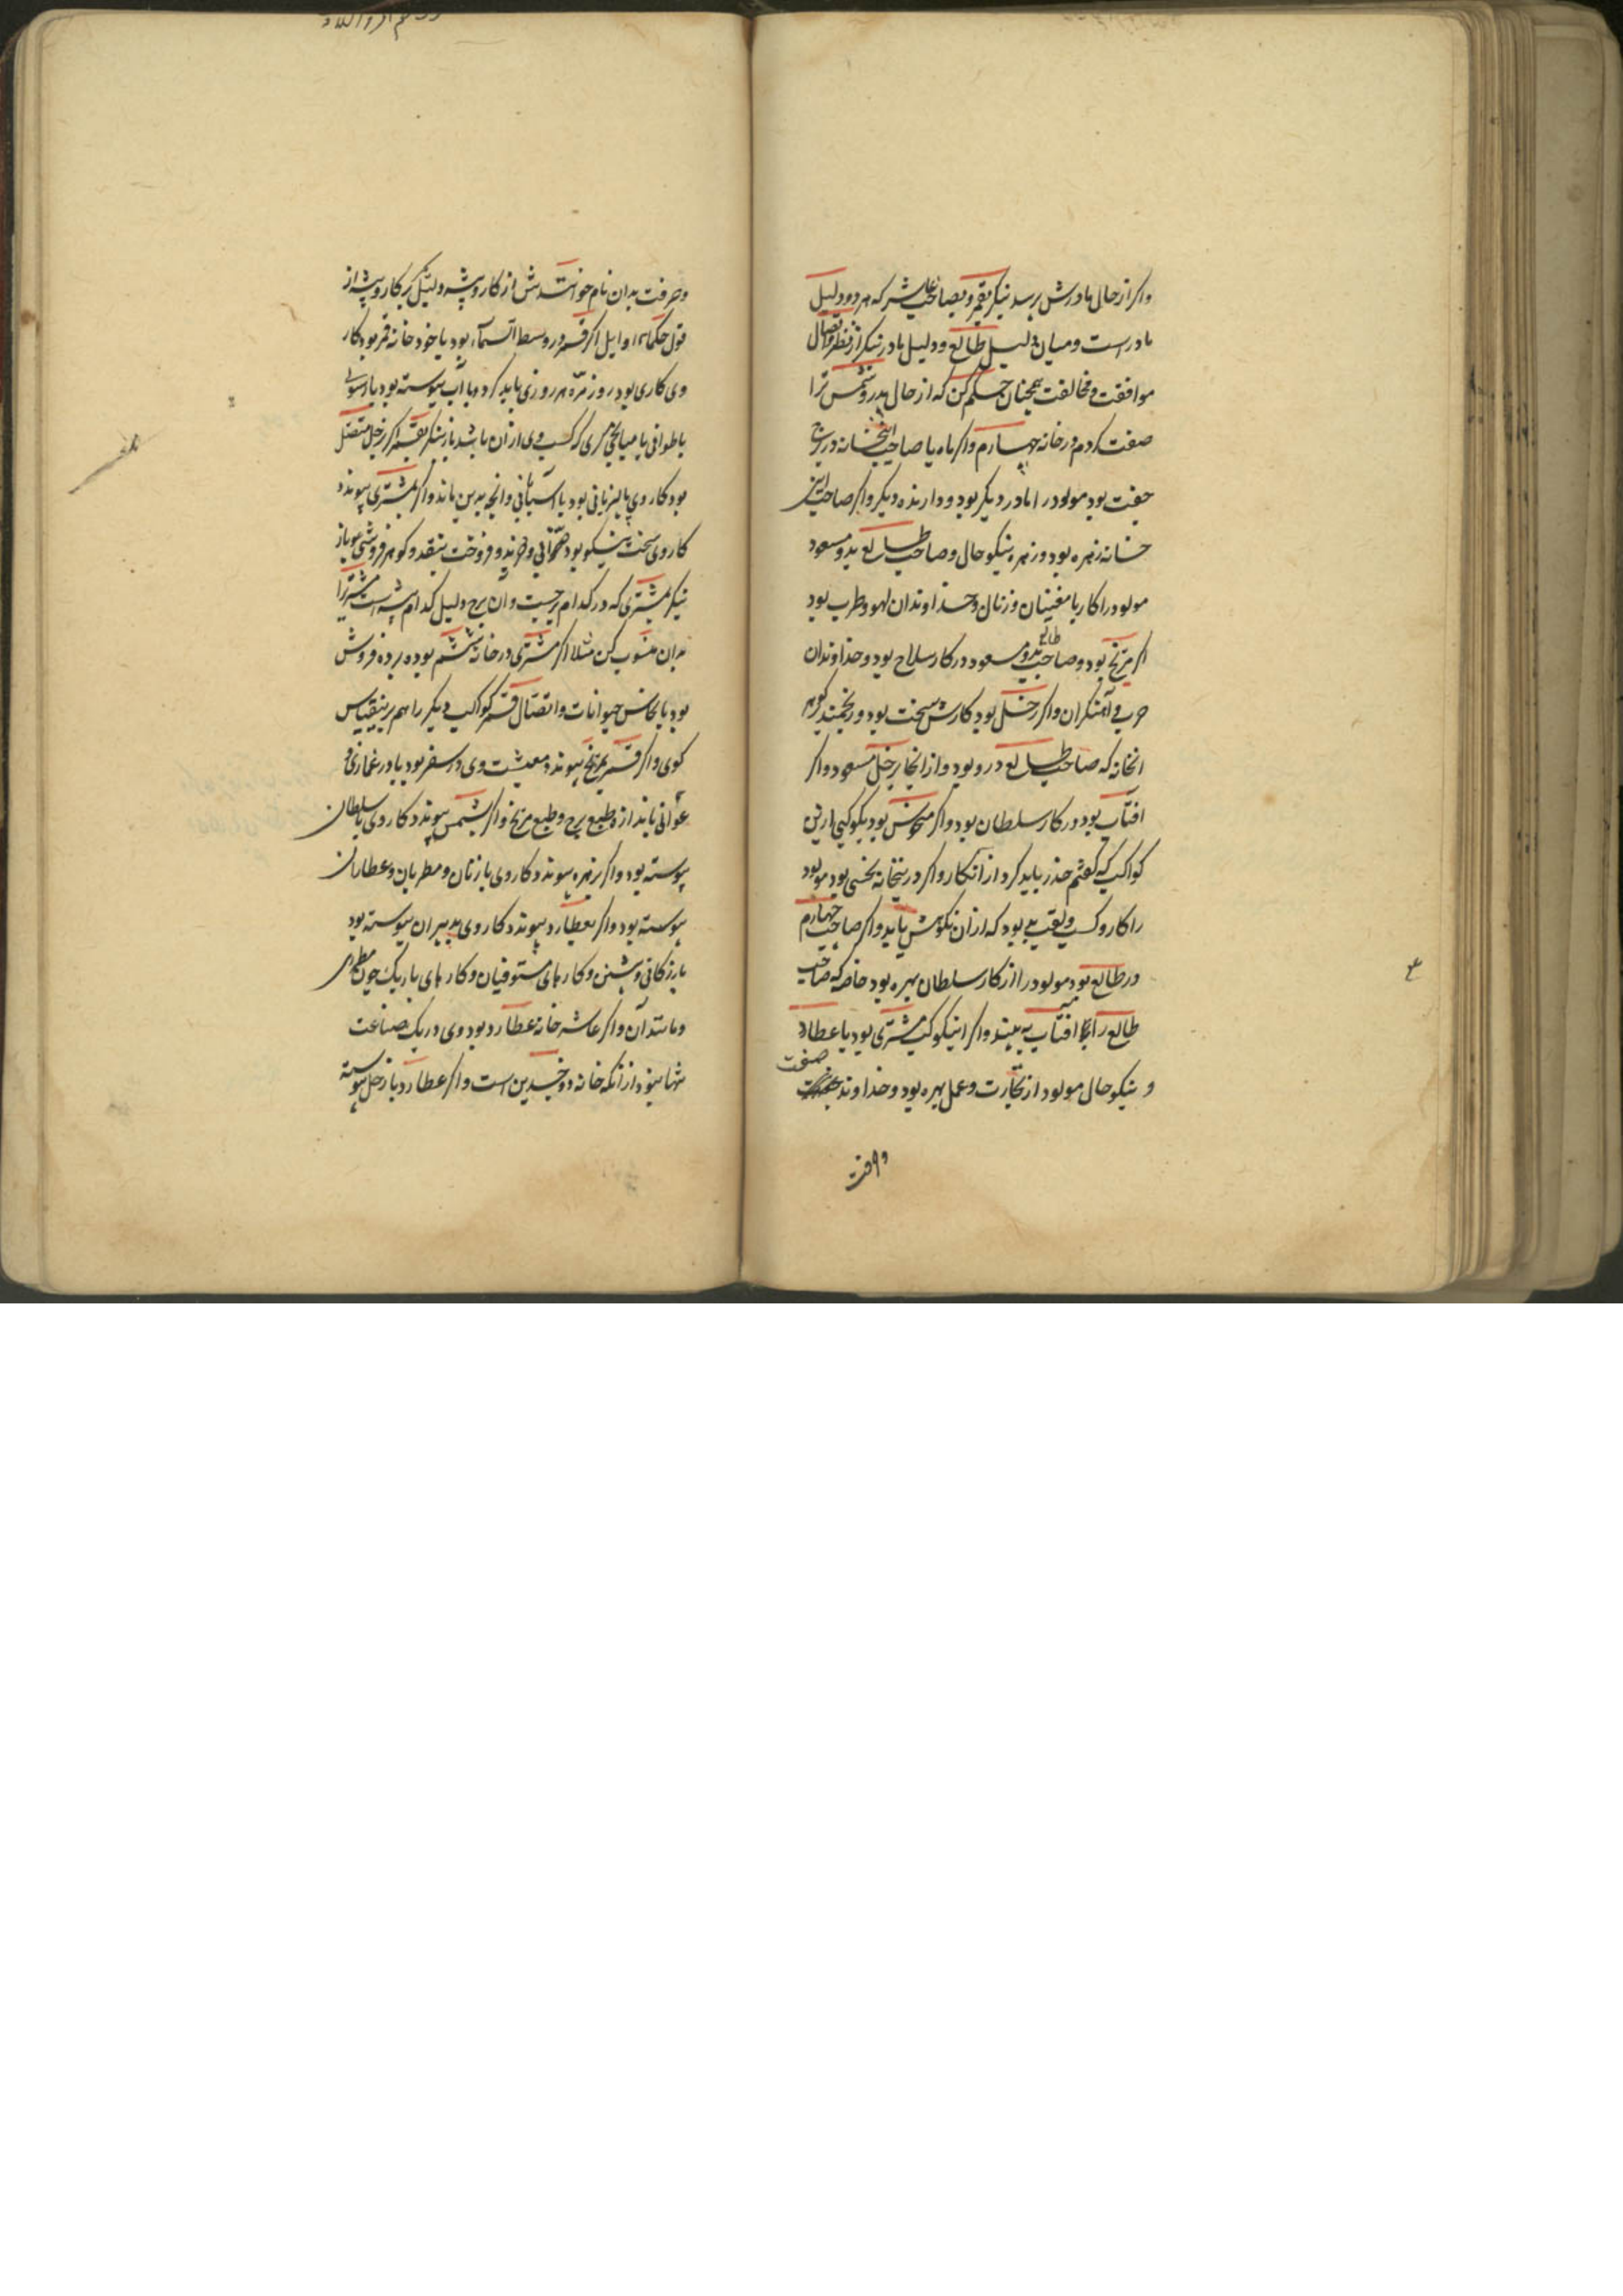 واکر از حال مادرش پرسد بنکر بقمر و بصاحب عاشر که هر دو دلیل
مادر است و میان دلیل طالع و دلیل مادر بنکر از نظر و اتصال
موافقت و مخالفت همچنان حکم کن که از حال پدر و شمس ترا
صفت کردم در خانه چهارم واکر ماه یا صاحب اینخانه در برج
جفت بود مولود را مادر دیکر بود و دارنده دیکر واکر صاحب این
خانه زهره بود و زهره نیکو حال و صاحب طالع بدو مسعود
مولود را کار با مغنیان و زنان و خداوندان لهو و طرب بود
اکر مریخ بود و صاحب طالع بدو مسعود در کار سلاح بود و خداوندان
حرب و آهنکران واکر زحل بود کارش سخت بود و رنجمند
انخانه که صاحب طالع درو بود و از انجا بزحل مسعود واکر
افتاب بود در کار سلطان بود واکر منحوس بود بکوکبی ازین
کواکب که کفتم حذر باید کرد از انکار واکر درینخانه نحسی بود مولود
را کار و کسب و لقب بد بود که از آن نکوهش یابد واکر صاحب چهارم
در طالع بود مولود را از کار سلطان بهره بود خاصه که صاحب
طالع را افتاب به بیند واکر اینکوکب مشتری بود یا عطارد
و نیکو حال مولود از تجارت و عمل بهره بود و خداوند صفت
و حرفت
و حرفت بدان نام خوانندش از کار و پیشه و دلیل بر کار و پیشه از
قول حکماء اوایل اکر قمر در وسط السماء بود یا خود خانه قمر بود کار
وی کاری بود روزمره هر روزی باید کرد و با آب پیوسته بود یا رسولی
یا طوافی یا میانجی کری که کسب وی از آن باشد باز بنکر بقمر اکر بزحل متصل
بود کار وی پالیزبانی بود یا آسیابانی و انچه بدین ماند واکر بمشتری پیوندد
کار وی سخت نیکو بود و خرید و فروخت بنقد و کوهر فروشی و باز
بنکر بمشتری که در کدام برجست و آن برج دلیل کدام پیشه است مشتری را
بدان منسوب کن مثلا اکر مشتری در خانه ششم بود برده فروش
بود یا نخاس حیوانات و اتصال قمر بکواکب دیکر را هم برینقیاس
کوی واکر قمر بمریخ پیوندد معیشت وی در سفر بود یا در غمازی و
عوانی باید از طبع برج و طبع مریخ واکر بشمس پیوندد کار وی با سلطان
پیوسته بود واکر بزهره پیوندد کار وی با زنان و مطربان و عطاران
پیوسته بود واکر بعطارد پیوندد کار وی بدبیران پیوسته بود
بازرکانی و کارهای مستوفیان و کارهای باریک چون مطرزی
و مانند آن واکر عاشر خانه عطارد بود وی در یک صناعت
نبود از آنکه خانه ذوجسدین است واکر عطارد با زحل پیوسته